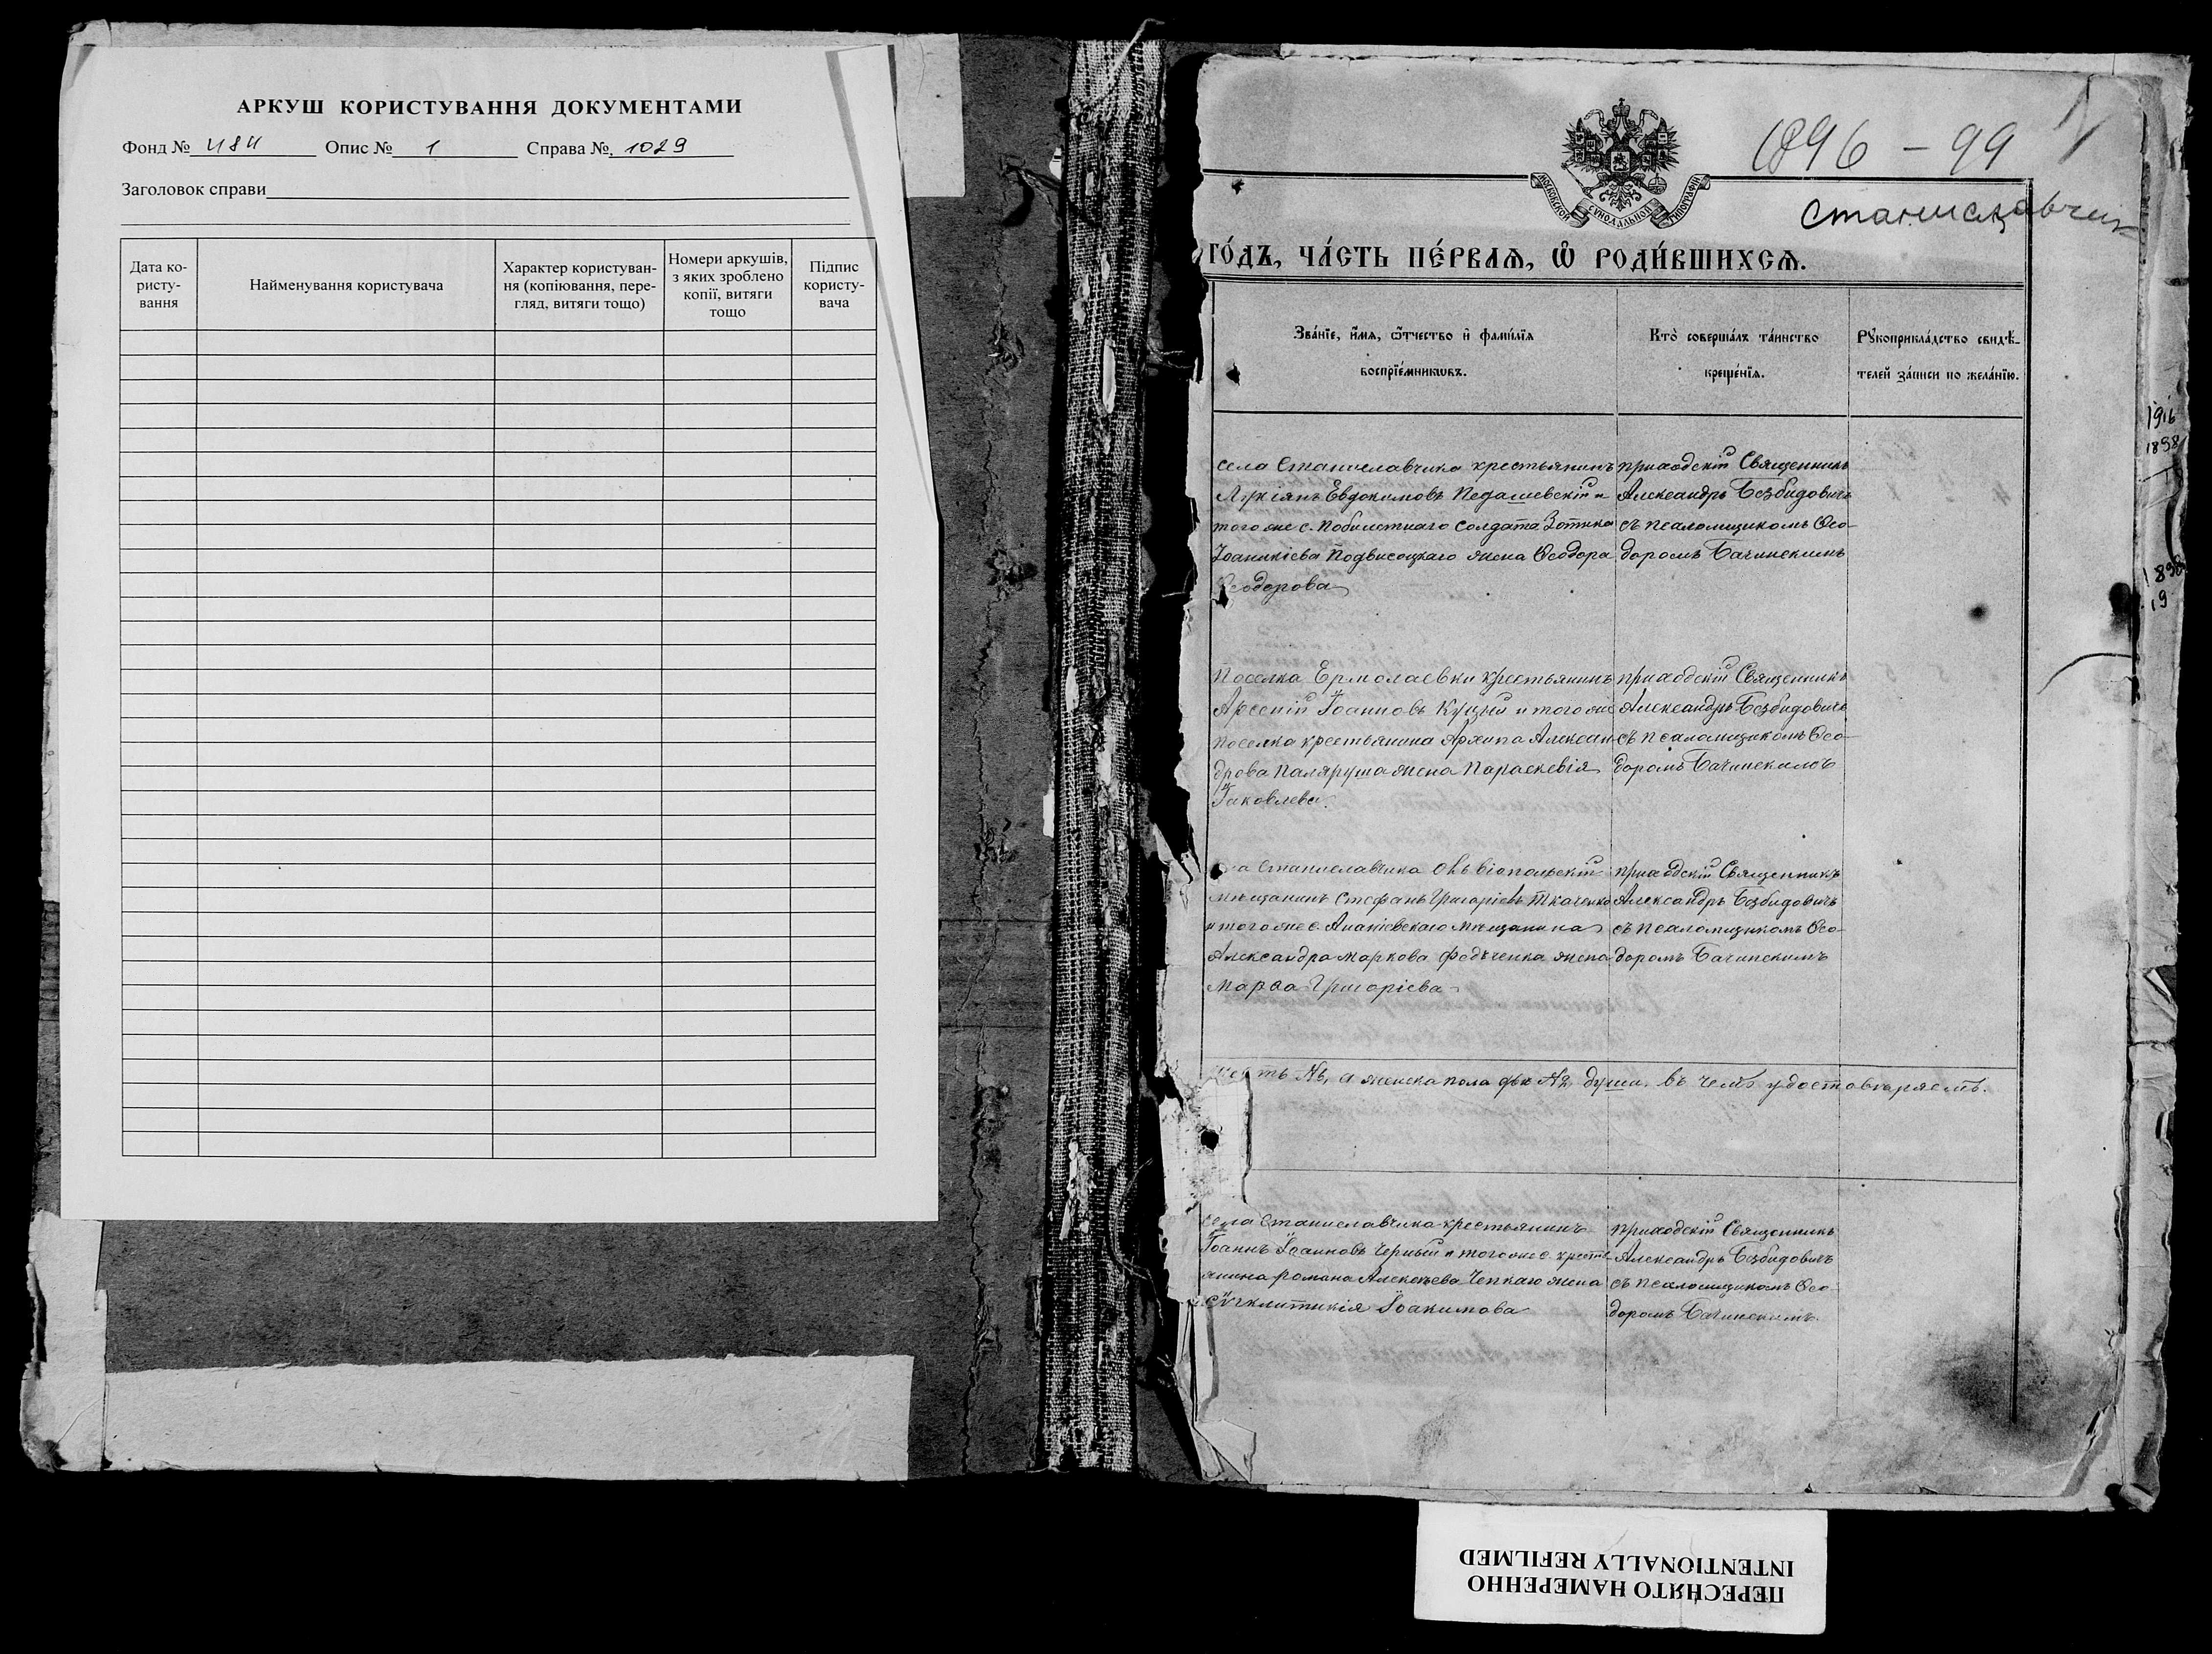 АРКУШ КОРИСТУВАННЯ ДОКУМЕНТАМИ
Фонд № 484 Опис № 1 Справа № 1029
Заголовок справи
Дата ко-
ристу-
вання
Найменування користувача
Характер користуван-
ня (копіювання, пере-
гляд, витяги тощо)
Номери аркушів,
з яких зроблено
копії, витяги
тощо
Підпис
користу-
вача
1896 - 99
1
Станиславчик
МОСКОВСКОЙ СѴНОДАЛЬНОЙ ТИПОГРАФІИ
ГО́ДЪ, ЧА́СТЬ ПЕ́РВАѦ, Ѽ РОДИ́ВШИХСѦ.
Зва́нїе, и҆́мѧ, ѻ҆́тчество и҆ фами́лїѧ
воспрїе́мникѡвъ.
Кто̀ соверша́лъ та́инство
креще́нїѧ.
Рꙋкоприкла́дство свидѣ́-
телей за́писи по жела́нїю.
села Станиславчика крестьянинъ
Лукіянъ Евдокимовъ Педашевскій и
того же с. побилетнаго солдата Зотика
Іоаникіева Подвисоцкаго жена Ѳеодора
Ѳеодорова
приходскій Священникъ
Александръ Безбидовичъ
съ псаломщикомъ Ѳео-
доромъ Бачинскимъ
Поселка Ермолаевки крестьянинъ
Арсеній Іоанновъ Куцый и того же
поселка крестьянина Архипа Алексан-
дрова Паляруша жена Параскевія
Іаковлева.
приходскій Священникъ
Александръ Безбидовичъ
съ псаломщикомъ Ѳео-
доромъ Бачинскимъ
Станиславчика Ольвіопольскій
мѣщанинъ Стефанъ Григоріевъ Ткаченко
и того же с. Ананіевскаго мѣщанина
Александра Маркова Федѣченка жена
Марѳа Григоріева
приходскій Священникъ
Александръ Безбидовичъ
съ псаломщикомъ Ѳео-
доромъ Бачинскимъ
а женска пола двѣ души, въ чемъ удостовѣряемъ.
села Станиславчика крестьянинъ
Іоаннъ Іоанновъ Черный и того же с. кресть-
янина Романа Алексѣева Чепкаго жена
Сѵнклитикія Іоакимова
приходскій Священникъ
Александръ Безбидовичъ
съ псаломщикомъ Ѳео-
доромъ Бачинскимъ.
1916
1898
1898
19
ПЕРЕСНЯТО НАМЕРЕННО
INTENTIONALLY REFILMED